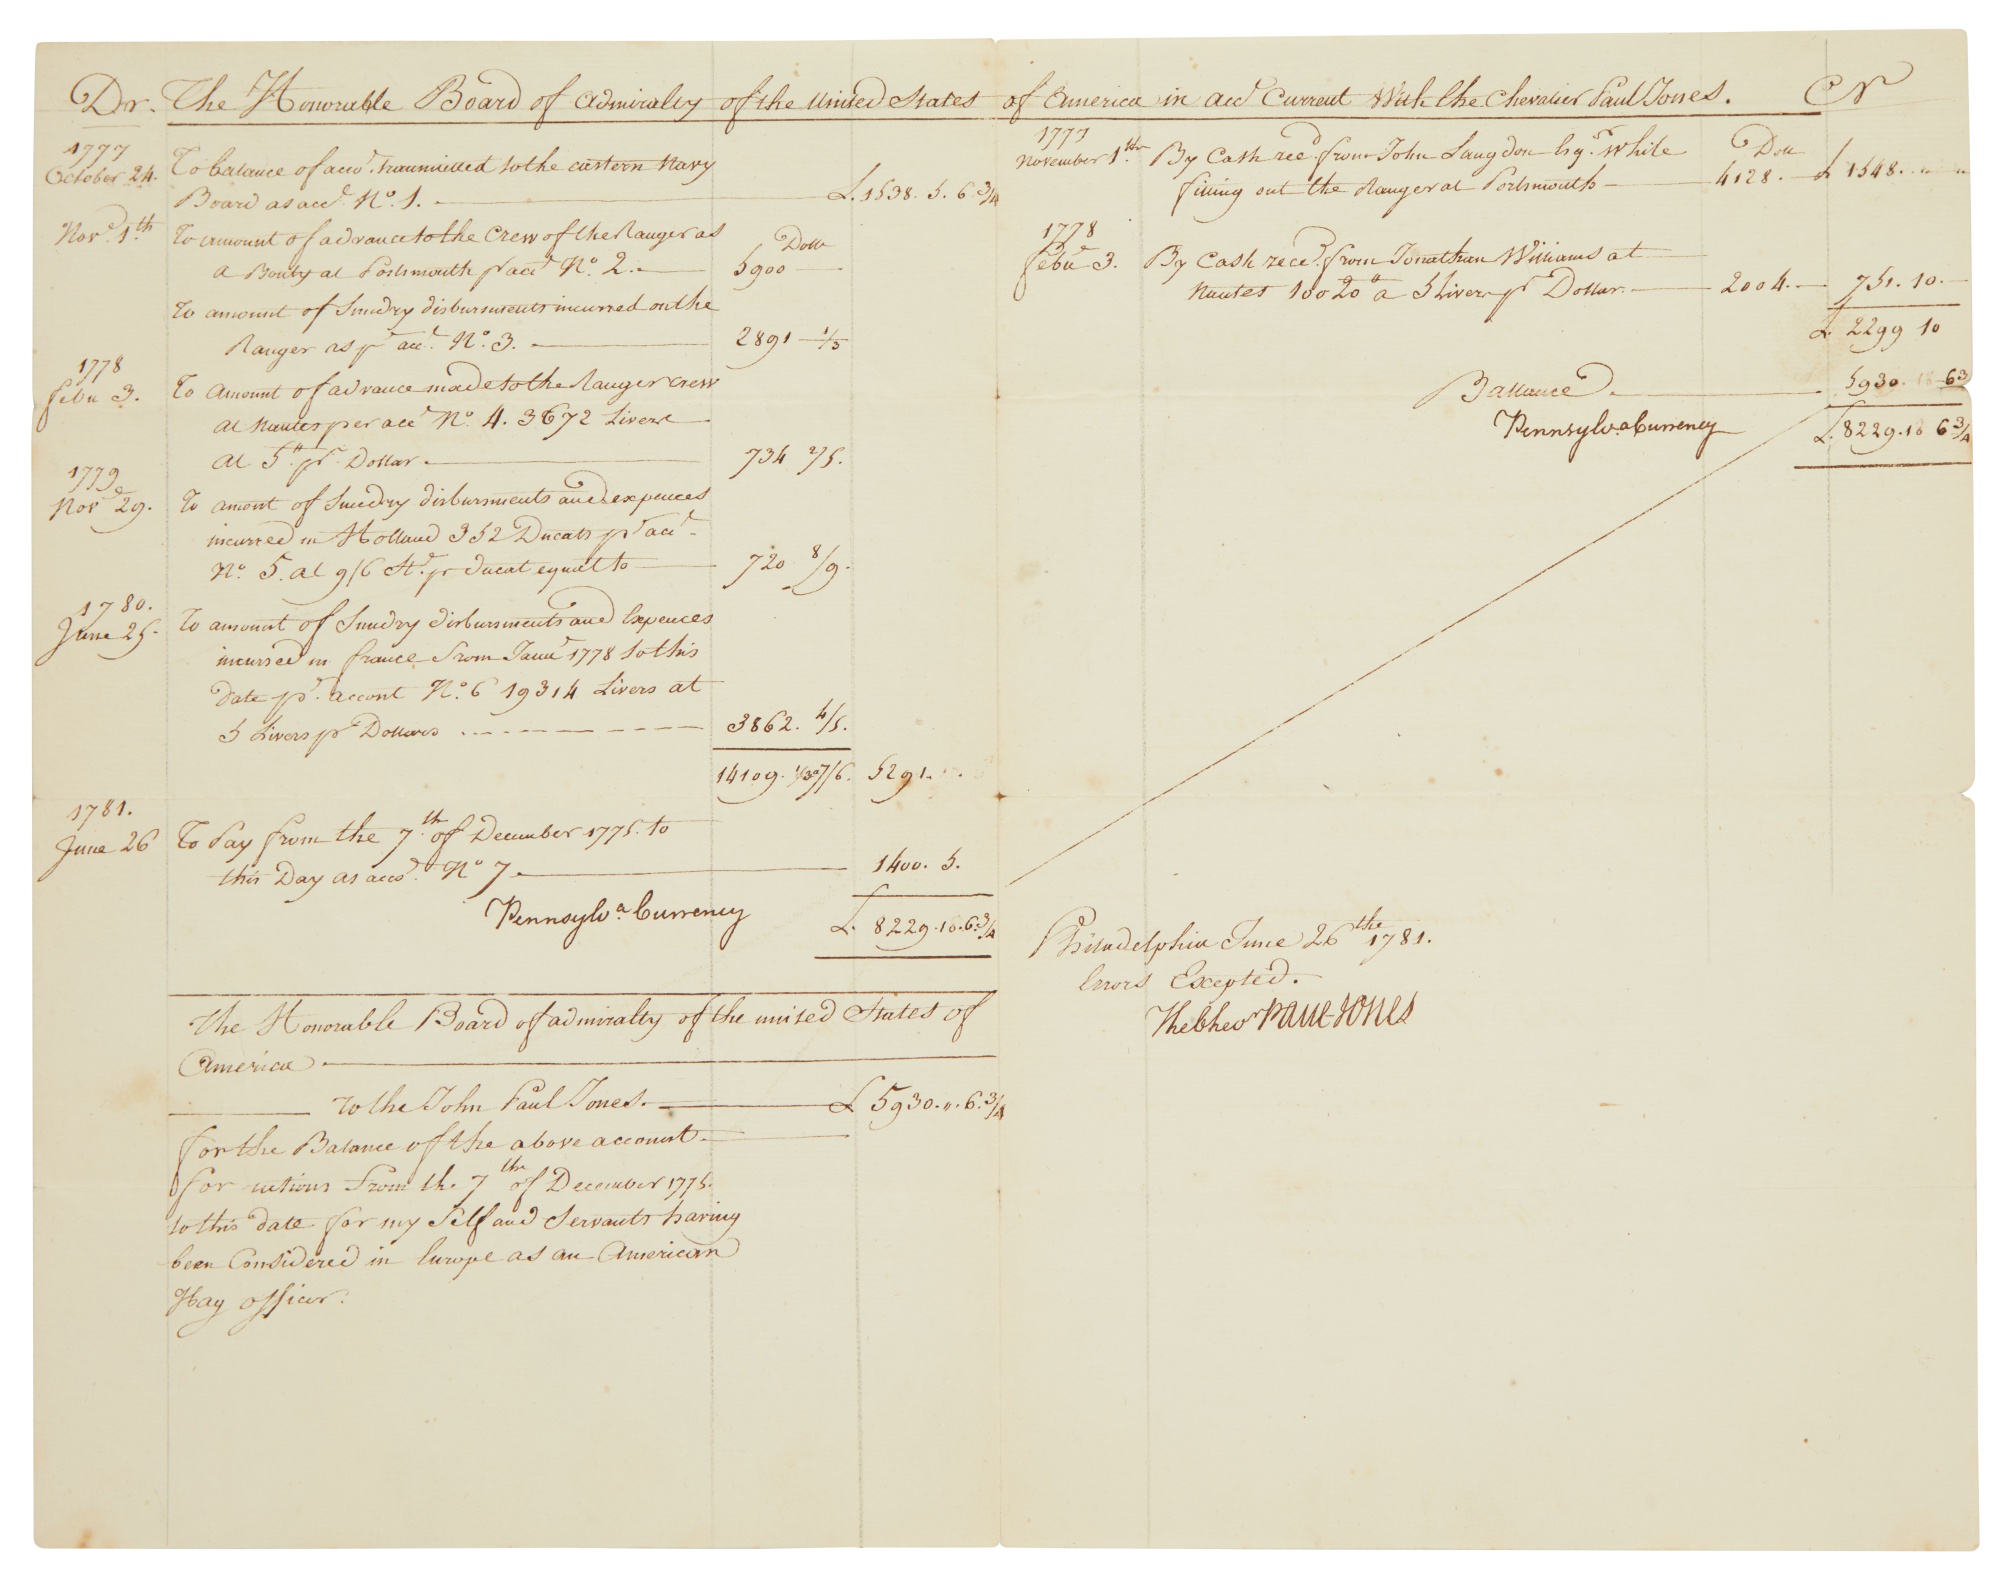 Dr. The Honorable Board of Admiralty of the United States of America in acct Current With the Chevalier Paul Jones. Cr
1777
October 24. To balance of acct. transmitted to the eastern Navy
Board as acct. No. 1. £. 1538. 5. 6 3/4
Novr 1th To amount of advance to the Crew of the Ranger as Dolls
a Bounty at Portsmouth pr acct No. 2. 5900
To amount of Sundry disbursments incurred on the
Ranger as pr acct. No. 3. 2891 1/3
1778
Febu 3. To Amount of advance made to the Ranger crew
at Nantes per acct No. 4. 3672 Livers
at 5tt pr Dollar 734 2/5.
1779
Novr 29. To amont of Sundry disbursments and expences
incurred in Holland 352 Ducats pr acct
No. 5. at 9/6 St. pr ducat equal to 720 8/9.
1780.
June 25. To amount of Sundry disbursments and Expences
incurred in france From Janur 1778 to this
Date pr. accont No. 6 19314 Livers at
5 Livers pr Dollars 3862. 4/5.
14109. 5291.
1781.
June 26 To Pay from the 7th. of December 1775. to
this Day as accot. No 7. 1400. 5.
Pennsylva Currency £. 8229. 18. 6 3/4
The Honorable Board of admiralty of the united States of
America
To the John Paul Jones. £ 5930. ". 6. 3/4
for the Balance of the above account
For rations From the 7th of December 1775.
to this date for my Self and Servants having
been Considered in Europe as an American
Flag officer.
1777
November 1th. By Cash recd. from John Langdon Esqr. while Doll
fitting out the Ranger at Portsmouth 4128. £ 1548. " "
1778
Febur 3. By Cash reced. from Jonathan Williams at
Nantes 10020tt a 5 Livers pr Dollar 2004. 751. 10.
£. 2299 10
Ballance 5930. 18 63
Pennsylva Currency £. 8229. 18 6 3/4
Philadelphia June 26the 1781.
Errors Excepted.
The Chevr Paul Jones